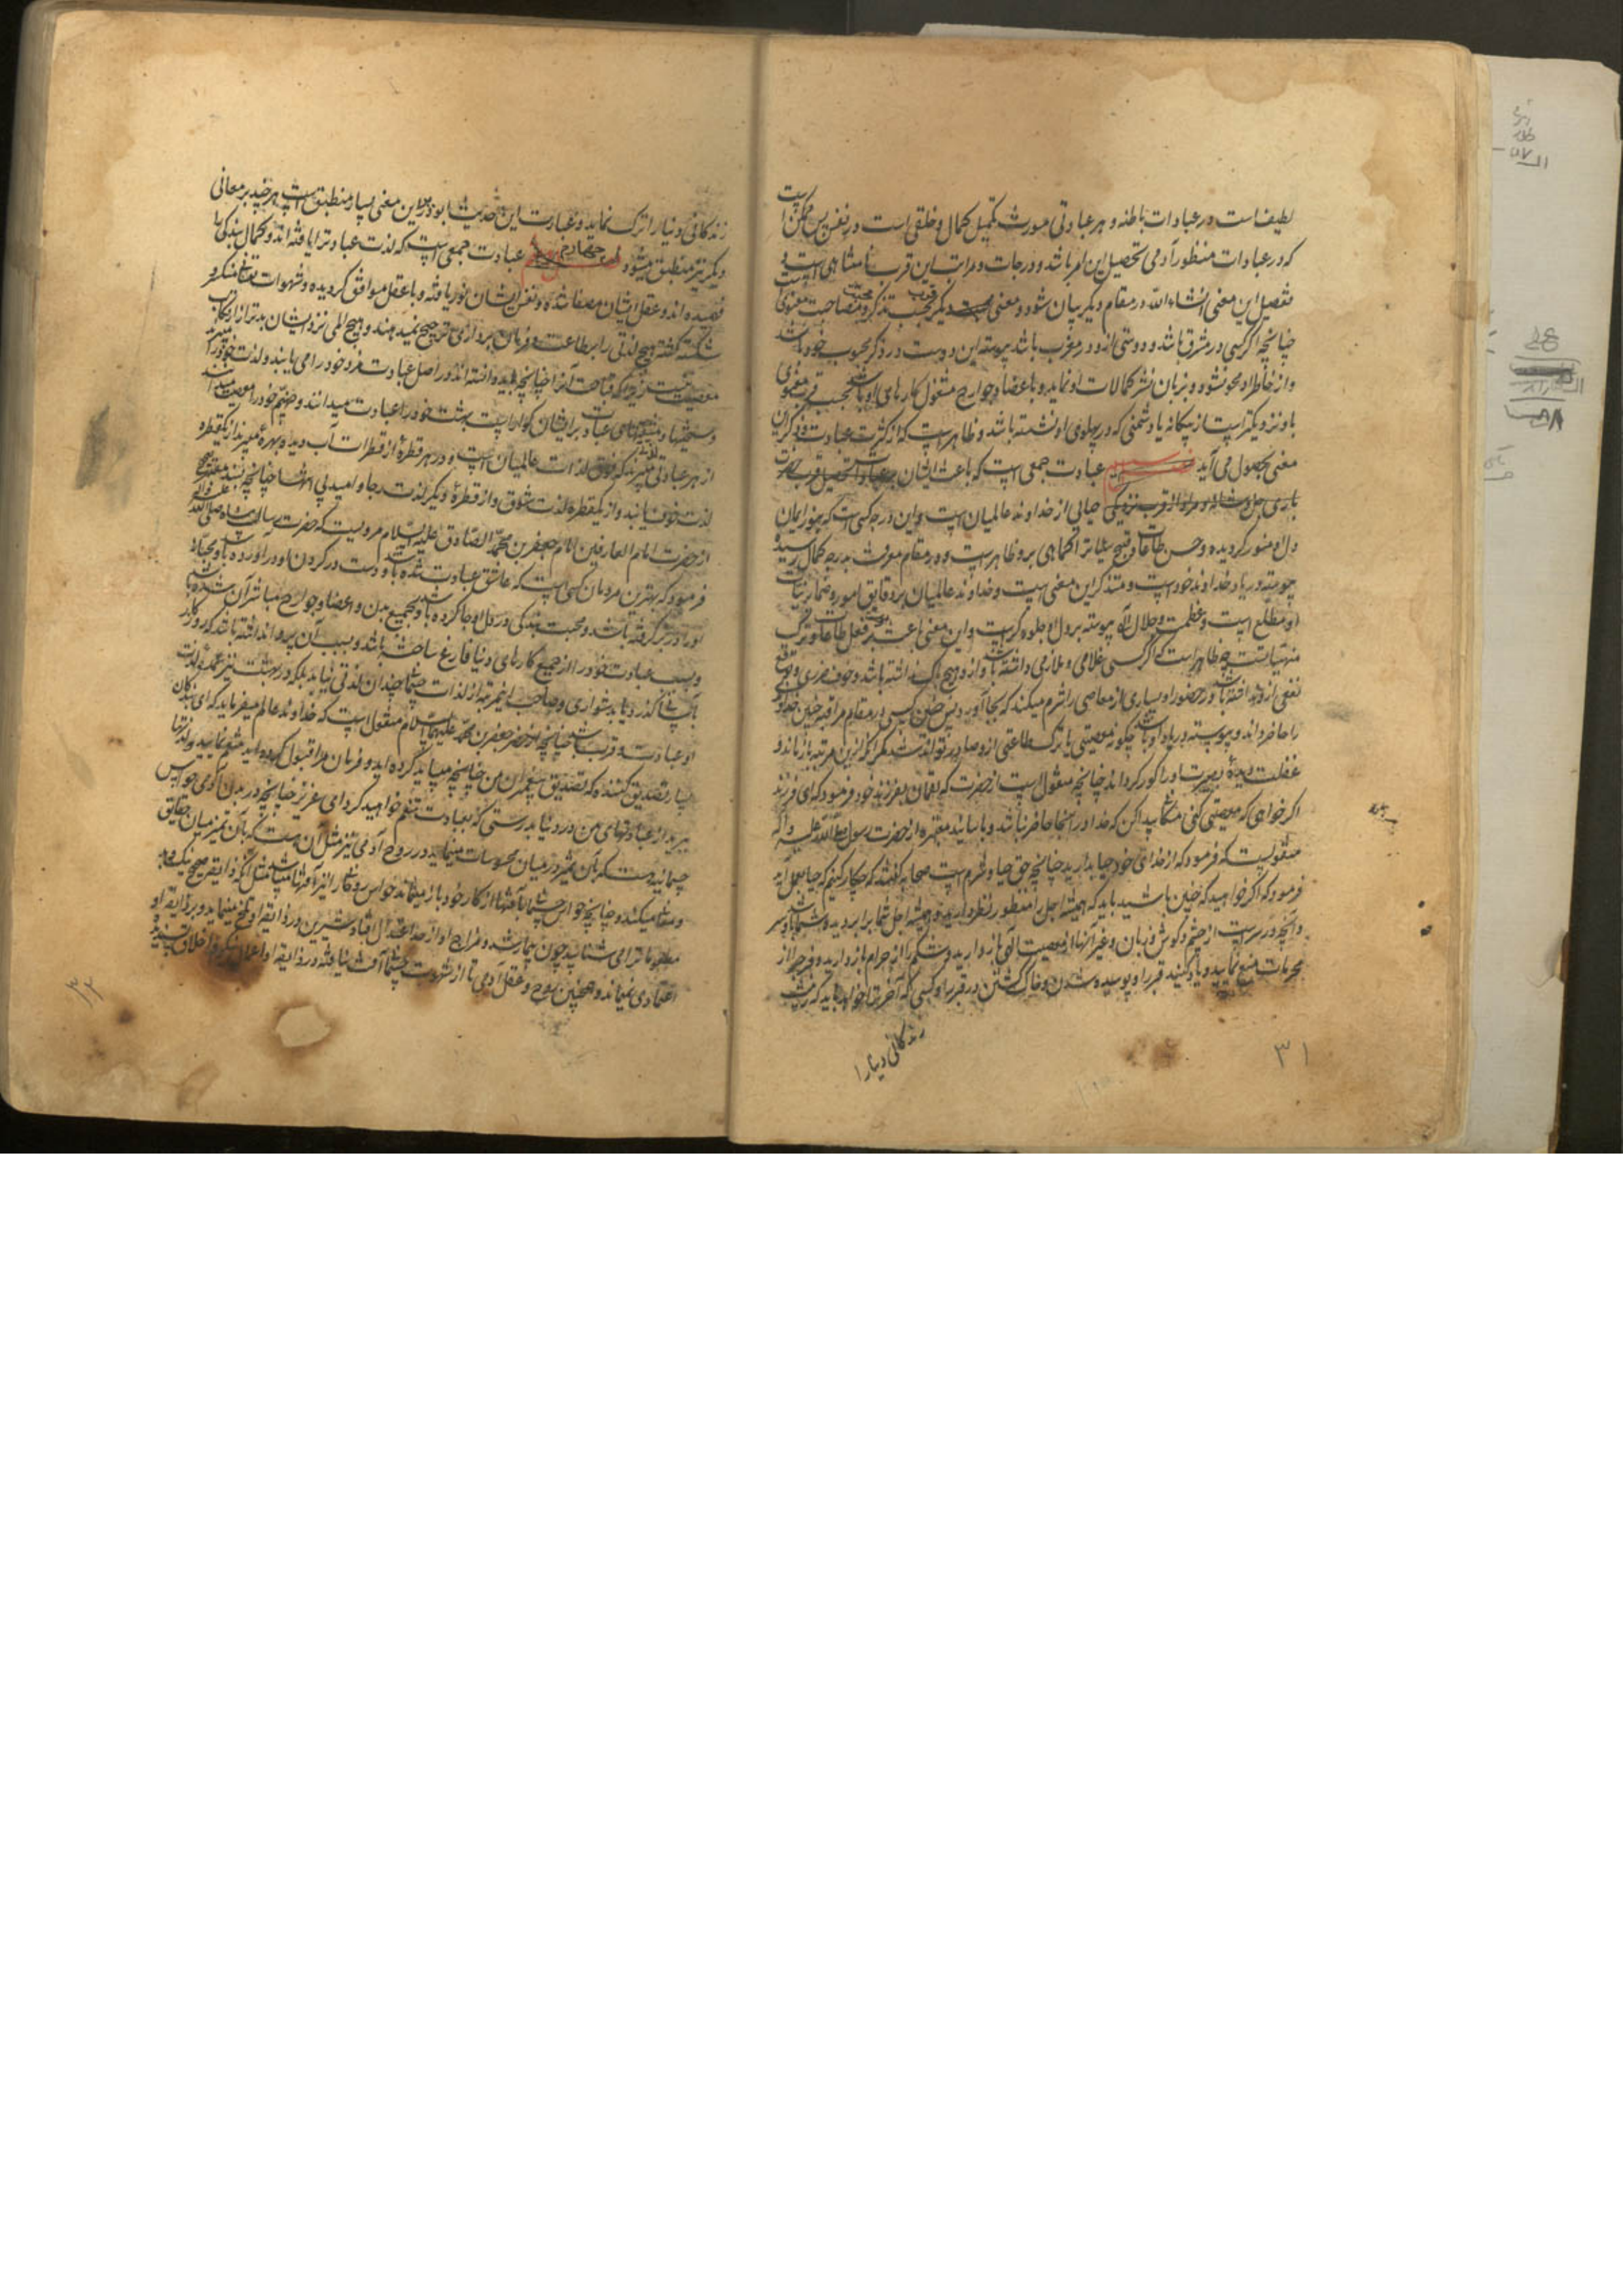 لطیف است در عبادات باطنه و هر عبادتی مورث تکمیل کمال و خلقی است در نفس پس ممکن است
که در عبادات منظور آدمی تحصیل این امر باشد و درجات و مراتب این قرب نامتناهی است و
تفصیل این معنی انشاء الله در مقام دیگر بیان شود و معنی دیگر قرب بحسب تذکر و محبت و مصاحبت معنوی است
چنانچه اگر کسی در مشرق باشد و دوستی از و در مغرب باشد پیوسته این دوست در ذکر محبوب خود باشد
و از خاطر او محو نشود و بزبان نشر کمالات او نماید و باعضا و جوارح مشغول کارهای او باشد بحسب قرب معنوی
باو نزدیکتر است از بیگانه یا دشمنی که در پهلوی او نشسته باشد و ظاهر است که از کثرت عبادت و ذکر این
معنی بحصول می آید عبادت جمعی است که باعث ایشان بر عبادت
حیائی از خداوند عالمیان است و این درجه کسی است که بنور ایمان
دل او منور گردیده و حسن طاعات و قبح سیئات کماهی برو ظاهر است و در مقام معرفت بدرجه کمال رسیده
پیوسته در یاد خداوند خود است و متذکر این معنی هست که خداوند عالمیان بر دقایق امور و ضمایر نیات
او مطلع است و عظمت و جلال اله پیوسته بر دل او جلوه گر است و این معنی باعث فعل طاعات و ترک
منهیاتست چه ظاهر است که اگر کسی غلامی و ملازمی داشته باشد و ازو هیچ باک نداشته باشد و خوف ضرری و توقع
نفعی ازو نداشته باشد در حضور او بسیاری از معاصی را شرم میکند که بجا آورد پس چنین کسی در مقام مراقبه چنین خداوندی
را حاضر داند و پیوسته در یاد او باشد چگونه معصیتی یا ترک طاعتی ازو صادر تواند شد مگر آنکه ازین مرتبه باز ماند و
غفلت دیده بصیرت او را کور گرداند چنانچه منقول است از حضرت که لقمان بفرزند خود فرمود که ای فرزند
اگر خواهی که معصیتی کنی مکانی پیدا کن که خدا در آنجا حاضر نباشد و باسانید معتبره از حضرت رسول صلی الله علیه و آله
منقولست که فرمود که از خدای خود حیا بدارید چنانچه حق حیا و شرم است صحابه گفتند که چکار کنیم که حیا بعمل آید
فرمود که اگر خواهید که چنین باشید باید که همیشه اجل را منظور نظر دارید و همیشه اجل شما برابر دیده شما باشد و سر
و آنچه در سر است از چشم و گوش و زبان و غیر آنها از معصیت الهی باز دارید و شکم را از حرام باز دارید و فرج را از
محرمات منع نمایید و یاد کنید قبر را و پوسیده شدن و خاک گشتن در قبر را و کسی که آخرت را خواهد باید که زینت
زندگانی دنیا را
۳۱
زندگانی دنیا را ترک نماید و عبادت این حدیث ابوذر برین معنی بسیار منطبق است هر چند بر معانی
دیگر نیز منطبق میشود چهاردهم عبادت جمعی است که لذت عبادت را یافته اند و بکمال بندگی را
فهمیده اند و عقل ایشان مصفا شده و نفس ایشان نور یافته و با عقل موافق گردیده و شهوات
شکسته گشته هیچ لذتی را بر طاعت و فرمان برداری ترجیح نمیدهند و هیچ المی نزد ایشان بدتر از ارتکاب
معصیت نیست زیرا که قباحت آنرا چنانچه باید دانسته اند و در اصل عبادت مزد خود را می یابند و لذت خود را
و سختیها و مشقتهای عبادت بر ایشان گوارا است بهشت خود را عبادت میدانند و جهنم خود را معصیت میدانند
از هر عبادتی لذتی میبرند که فوق لذات عالمیان است و در هر قطره از قطرات آب دیده بهره میبرند از یکقطره
لذت خوف یابند و از یکقطره لذت شوق و از قطره دیگر لذت رجا و امید بی انتها چنانچه بسند معتبر صحیح
از حضرت امام العارفین امام جعفر بن محمد الصادق علیه السلام مرویست که حضرت رسالت پناه صلی الله علیه و آله
فرمود که بهترین مردمان کسی است که عاشق عبادت شده باشد و دست در گردن او در آورده باشد و
او را در بر گرفته باشد و محبت بندگی در دل او جا کرده باشد و بجمیع بدن و اعضا و جوارح مباشر آن شده باشد
و بسبب عبادت خود را از جمیع کارهای دنیا فارغ ساخته باشد و بسبب آن پروا نداشته باشد که روزگار
او بآسانی گذرد یا بدشواری و صاحب این مرتبه از لذات جسمانی چندان لذتی نیابد بلکه در بهشت نیز عمده لذت
او عبادت و قرب باشد چنانچه از حضرت جعفر بن محمد علیهما السلام منقول است که خداوند عالم میفرماید که ای بندگان
بسیار تصدیق کننده که تصدیق پیغمبران من چنانچه میباید کرده اید و فرمان مرا قبول کرده اید متنعم شوید و لذتها
ببرید از عبادتهای من در دنیا بدرستی که بعبادت متنعم خواهید گردید ای عزیز چنانچه در بدن آدمی حواس
جسمانیه هست که بآن تمیز در میان محسوسات مینماید در روح آدمی نیز مثل آن هست که بآن تمیز میان حقایق
و معانی میکند و چنانچه حواس جسمانی بآفتها از کار خود باز میماند حواس روحانی را نیز آفتها میباشد مثل آنکه ذائقه صحیح نیک و بد
مطعومات را می شناسد چون بیمار شد و مزاج او از حد اعتدال افتاد شیرین در ذائقه او تلخ مینماید و بر ذائقه او
اعتمادی نمیماند و همچنین روح و عقل آدمی تا از شهوت جسمانی آفت نیافته در ذائقه او اعمال نیکو و اخلاق پسندیده